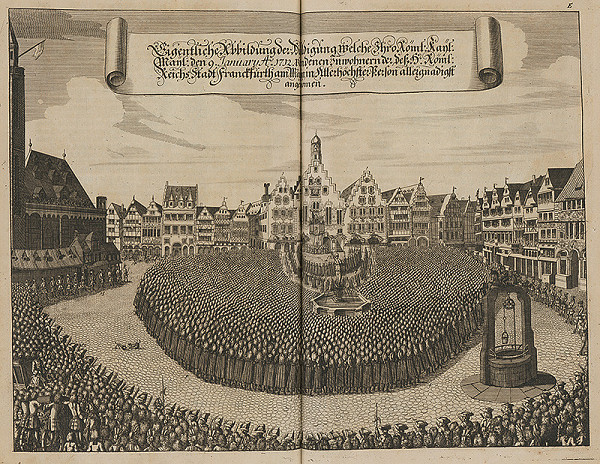 E
Eigentliche Abbildung der Huldigung welche Ihro Röml: Kayl:
Mayt: den 9. January Aº. 1712. von denen Inwohnern der deß H. Röml:
Reichs Stadt Franckfürth am Mayn in Allerhöchster Person allergnädigst
angenomen.